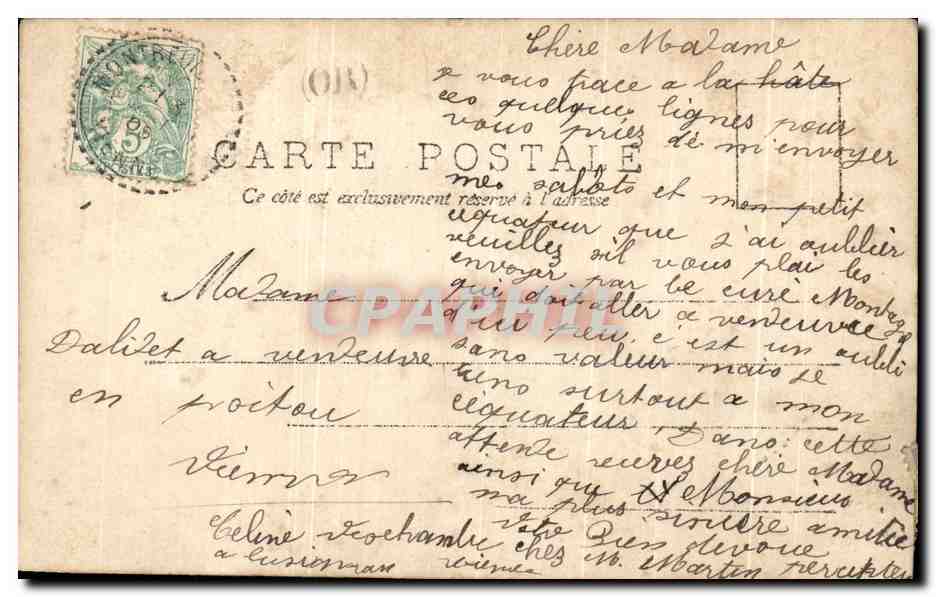 MONTREUIL
VIENNE
5
(OR)
CARTE POSTALE
Ce côté est exclusivement réservé à l'adresse
CPAPHIL
Chère Madame
je vous trace a la hâte
ces quelques lignes pour
vous priez dé m'envoyer
mes sabots et mon petit
équateur que j'ai oublier
veuillez sil vous plai les
envoyar par le curé Montaga
qui doit aller a vendeuvre
d'ici peu, c'est un oubli
sans valeur mais je
tins surtout a mon
équateur, Dans cette
attente recevez chère Madame
ainsi que Monsieur
ma plus sincère amitié
Votre Bien devoué
Madame
Dalidet a vendeuvre
en poitou
Vienne
Celine chez M. Martin percepteur
a Lusignan vienne